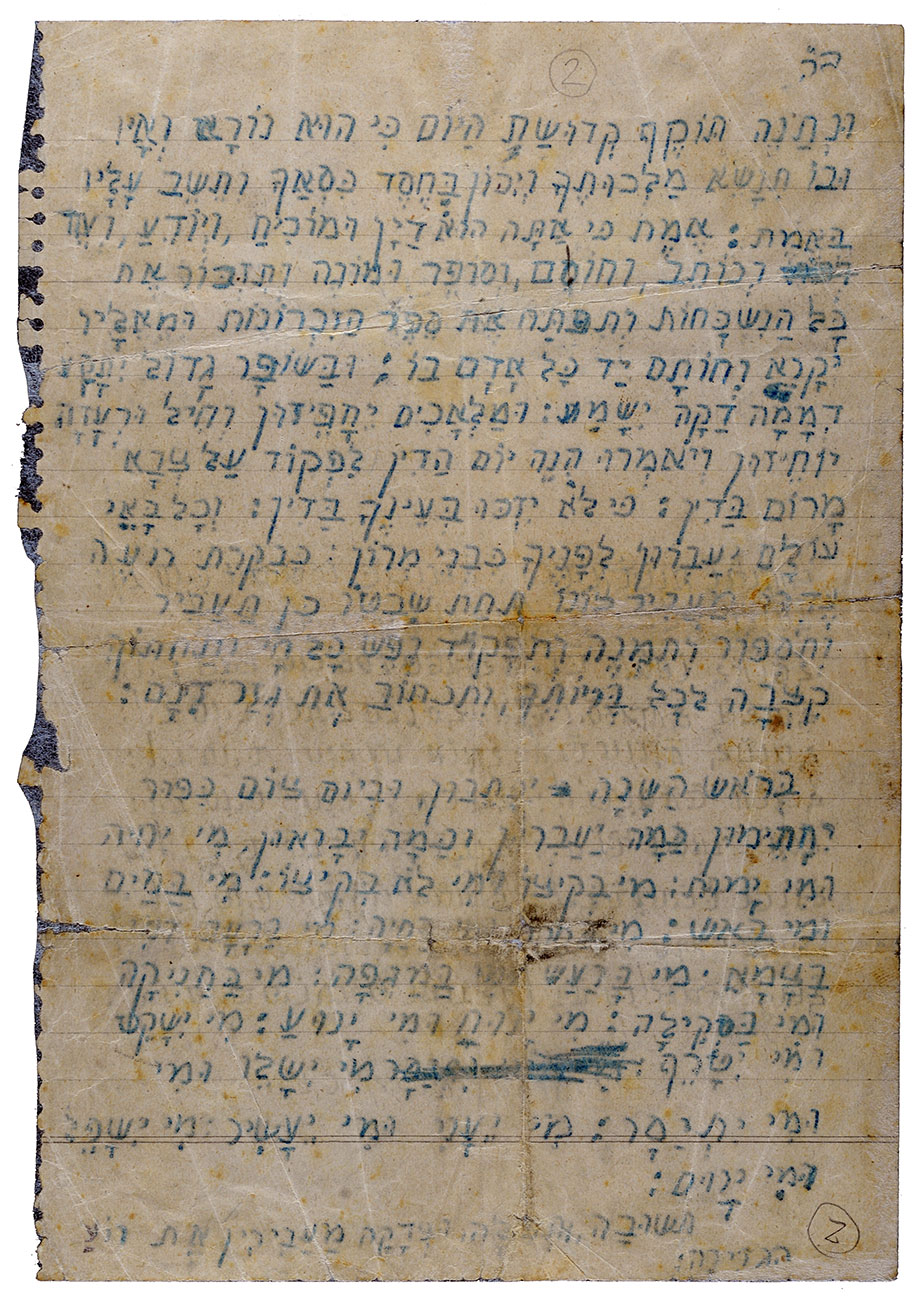 ב״ה
2
וּנְתַנֶה תוֹקֶף קְדוּשַת הַיוֹם כִּי הוּא נוֹרָא וְאָיוֹ
וּבוֹ תִנַשֵא מַלְכוּתֶךָ וְיִכּוֹן בְּחֶסֶד כִּסְאֶךָ וְתֵשֵב עָלָיו
בֶּאֱמֶת: אֱמֶת כִּי אַתָּה הוּא דַיָן וּמוֹכִיחַ, וְיוֹדֵעַ, וְעֵד
וְכוֹתֵב, וְחוֹתֵם, וְסוֹפֵר וּמוֹנֶה וְתִזְכּוֹר אֶת
כָּל הַנִשְכָּחוֹת וְתִפְתַּח אֶת סֵפֶר הַזִכְרוֹנוֹת וּמֵאֵלָיו
יִקָרֵא וְחוֹתָם יַד כָּל אָדָם בּוֹ: וּבַשוֹפָר גָדוֹל יִתָּקַע
דְמָמָה דַקָה יִשָמַע: וּמַלְאָכִים יֵחָפֵיזוּן וְחִיל וּרְעָדָה
יוֹחֵיזוּן וְיֹאמְרוּ הִנֵה יוֹם הַדִין לִפְקוֹד עַל צְבָא
מָרוֹם בַּדִין: כִּי לֹא יִזְכּוּ בְעֵינֶיךָ בַּדִין: וְכָל בָּאֵי
עוֹלָם יַעַבְרוּן לְפָנֶיךָ כִּבְנֵי מָרוֹן: כְּבַקָרַת רוֹעֶה
עֶדְרוֹ מַעֲבִיר צֹאנוֹ תַחַת שִבְטוֹ כֵּן תַעֲבִיר
וְתִסְפּוֹר וְתִמְנֶה וְתִפְקוֹד נֶפֶש כָּל חָי וְתַחְתוֹךְ
קִצְבָה לְכָל בְּרִיוֹתֶךָ, וְתִכְתוֹב אֶת גְזַר דִינָם:
בְּרֹאש הַשָנָה יִכָּתֵבוּן, וּבְיוֹם צוֹם כִּפּוּר
יֵחָתֵימוּן, כַּמָה יַעַבְרוּן וְכַמָה יִבָּרֵאוּן, מִי יִחְיֶה
וּמִי יָמוּת: מִי בְקִיצוֹ וּמִי לֹא בְקִיצוֹ: מִי בַמַיִם
וּמִי בָאֵש: מִי וּמִי בַחַיָה: מִי בָרָעָב וּמִי
בַצָמָא. מִי בָרַעַש וּמִי בַמַגֵפָה: מִי בַחֲנִיקָה
וּמִי בַסְקִילָה: מִי יָנוּחַ וּמִי יָנוּעַ: מִי יִשָקֵט
וּמִי יִטָרֵף מִי יִשָלֵו וּמִי
וּמִי יִתְיַסָר: מִי יֵעָנִי וּמִי יֵעָשֵיר: מִי יִשָפֵל
וּמִי יָרוּם:
תשוּבָה, וּתְפִלָה וּצְדָקָה מַעֲבִירִין אֶת רוֹעַ
הגזירה:
2